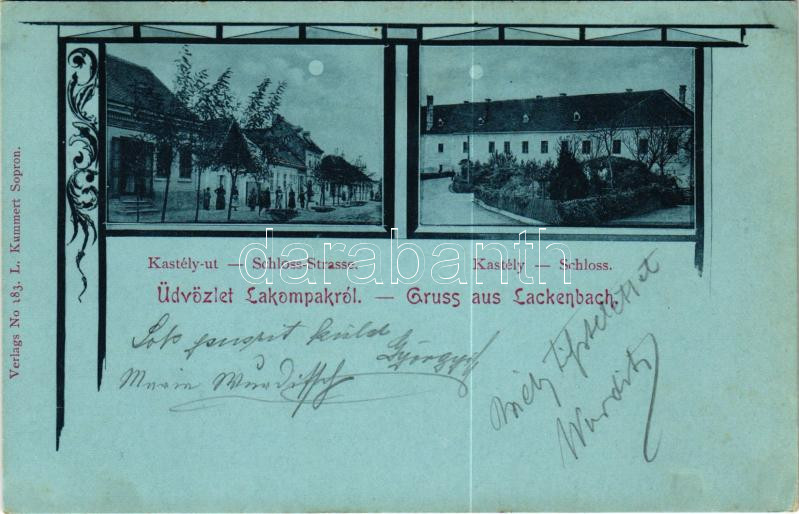 Verlags No 183. L. Kummert Sopron.
Kastély-ut — Schloss-Strasse.
Kastély — Schloss.
Üdvözlet Lakompakról. — Gruss aus Lackenbach.
darabanth
Sok puszit küld
Györgyi
Marie Wurditsch